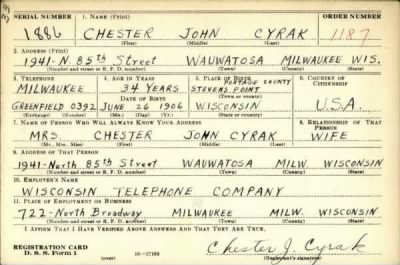 SERIAL NUMBER 1. NAME (Print) ORDER NUMBER
1886 CHESTER JOHN CYRAK 1187
(First) (Middle) (Last)
2. ADDRESS (Print)
1941-N. 85th STREET WAUWATOSA MILWAUKEE WIS.
(Number and street or R. F. D. number) (Town) (County) (State)
3. TELEPHONE 4. AGE IN YEARS 5. PLACE OF BIRTH 6. COUNTRY OF CITIZENSHIP
MILWAUKEE 34 YEARS PORTAGE COUNTY STEVENS POINT
DATE OF BIRTH (Town or county)
GREENFIELD 0392 JUNE 26 1906 WISCONSIN U.S.A.
(Exchange) (Number) (Mo.) (Day) (Yr.) (State or country)
7. NAME OF PERSON WHO WILL ALWAYS KNOW YOUR ADDRESS 8. RELATIONSHIP OF THAT PERSON
MRS. CHESTER JOHN CYRAK WIFE
(Mr., Mrs., Miss) (First) (Middle) (Last)
9. ADDRESS OF THAT PERSON
1941-NORTH 85th STREET WAUWATOSA MILW. WISCONSIN
(Number and street or R. F. D. number) (Town) (County) (State)
10. EMPLOYER'S NAME
WISCONSIN TELEPHONE COMPANY
11. PLACE OF EMPLOYMENT OR BUSINESS
722-NORTH BROADWAY MILWAUKEE MILW. WISCONSIN
(Number and street or R. F. D. number) (Town) (County) (State)
I AFFIRM THAT I HAVE VERIFIED ABOVE ANSWERS AND THAT THEY ARE TRUE.
REGISTRATION CARD
D. S. S. Form 1 (over) 16-17105 Chester J. Cyrak
(Registrant's signature)